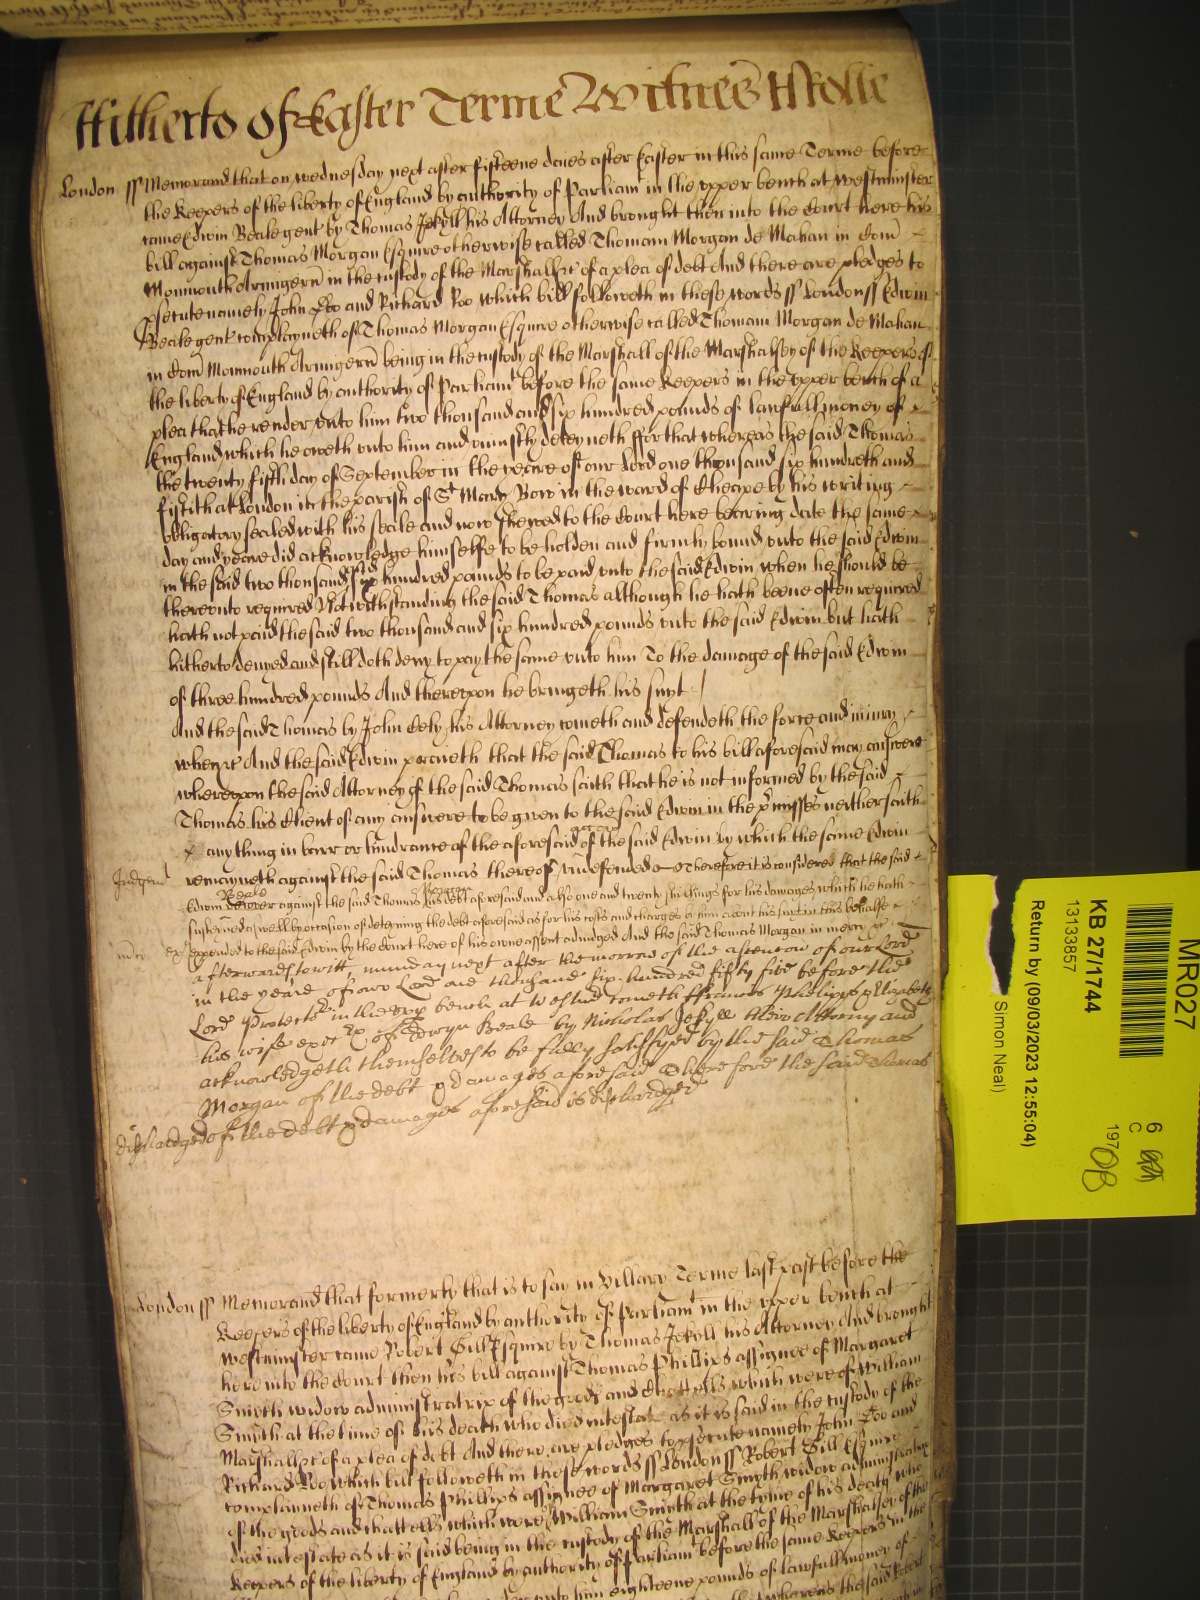 Hitherto Of Easter Terme Witnes H Rolle
London ss Memorand that on wednesday next after fifteene daies after Easter in this same Terme before
the Keepers of the liberty of England by authority of Parliam in the vpper bench at westminster
came Edwin Beale gent by Thomas Jekyll his Attorney And brought then into the Court here his
bill against Thomas Morgan Esquire otherwise called Thomam Morgan de Mahan in Com
Monmouth Armigerum in the custody of the Marshall &c of a plea of debt And there are pledges to
psecute namely John Doo and Richard Roo which bill followeth in these words ss London ss Edwin
Beale gent complayneth of Thomas Morgan Esquire otherwise called Thomam Morgan de Mahan
in Com Monmouth Armigerum being in the custody of the Marshall of the Marshalsey of the Keepers of
the liberty of England by authority of Parliam before the same Keepers in the vpper bench of a
plea that he render vnto him two thousand and six hundred pounds of lawfull money of
England which he oweth vnto him and uniustly deteyneth ffor that whereas the said Thomas
the twenty fifth day of September in the yeare of our Lord one thousand six hundreth and
fiftith at London in the parish of St Mary Bow in the ward of Cheape by his writing
obligatory sealed with his seale and now shewed to the Court here bearing date the same
day and yeare did acknowledge himselfe to be holden and firmly bound vnto the said Edwin
in the said two thousand six hundred pounds to be paid vnto the said Edwin when he should be
therevnto required Notwithstanding the said Thomas although he hath beene often required
hath not paid the said two thousand and six hundred pounds vnto the said Edwin but hath
hitherto denyed and still doth deny to pay the same vnto him To the damage of the said Edwin
of three hundred pounds And therevpon he bringeth his suyt
And the said Thomas by John Cely his Attorney cometh and defendeth the force and iniury
when &c And the said Edwin prayeth that the said Thomas to his bill aforesaid may answere
wherevpon the said Attorney of the said Thomas saith that he is not informed by the said
Thomas his Client of any answere to be given to the said Edwin in the pmisses neither saith
any thing in barr or hindrance of the aforesaid accon of the said Edwin by which the same Edwin
remayneth against the said Thomas thereof vndefended Therefore it is considered that the said
Judgmt
Edwin Beale recover against the said Thomas Morgan his debt aforesaid and also one and twenty shillings for his damages which he hath
susteyned aswell by occasion of deteyning the debt aforesaid as for his costs and charges by him about his suyt in this behalfe
expended to the said Edwin by the Court here of his owne assent adiudged And the said Thomas Morgan in mercy &c
afterwards to witt munday next after the morrow of the ascencon of our Lord
in the yeare of our Lord one thousand six hundred fifty five before the
Lord Protector in the vpp bench at Westmr cometh ffrancis Phelipps & Elizabeth
his wife exec &c of Edwyn Beale by Nicholas Jekyll their Attorny and
acknowledgeth themselves to be fully satisfyed by the said Thomas
Morgan of the debt & damages aforesaid Therefore the said Thomas
dischardged of the debt & damages aforesaid is dischardged
London ss Memorand that formerly that is to say in Hillary Terme last past before the
Keepers of the liberty of England by authority of Parliam in the vpper bench at
westminster came Robert Hill Esquire by Thomas Jekyll his Attorney And brought
here into the Court then his bill against Thomas Phillips assignee of Margaret
Smyth widow administratrix of the goods and Chattells which were of William
Smyth at the time of his death who died intestate as it is said in the custody of the
Marshall &c of a plea of debt And there are pledges to psecute namely John Doo and
Richard Roo which bill followeth in these words ss London ss Robert Hill Esquire
complaineth of Thomas Phillips assignee of Margaret Smyth widow administratrix
of the goods and chattells which were of William Smyth at the tyme of his death who
died intestate as it is said being in the custody of the Marshall of the Marshalsey of the
Keepers of the liberty of England by authority of Parliam before the same Keepers in the
vnto him eighteene pounds of lawfull money of
whereas the said Robert
MR027
6
C
197
OB
KB 27/1744
13133857
Return by (09/03/2023 12:55:04)
Simon Neal)